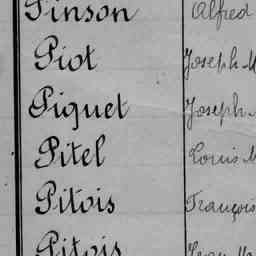 Pinson Alfred
Piot Joseph M
Piquet Joseph
Pitel Louis M
Pitois François
Pitois Jean Ma